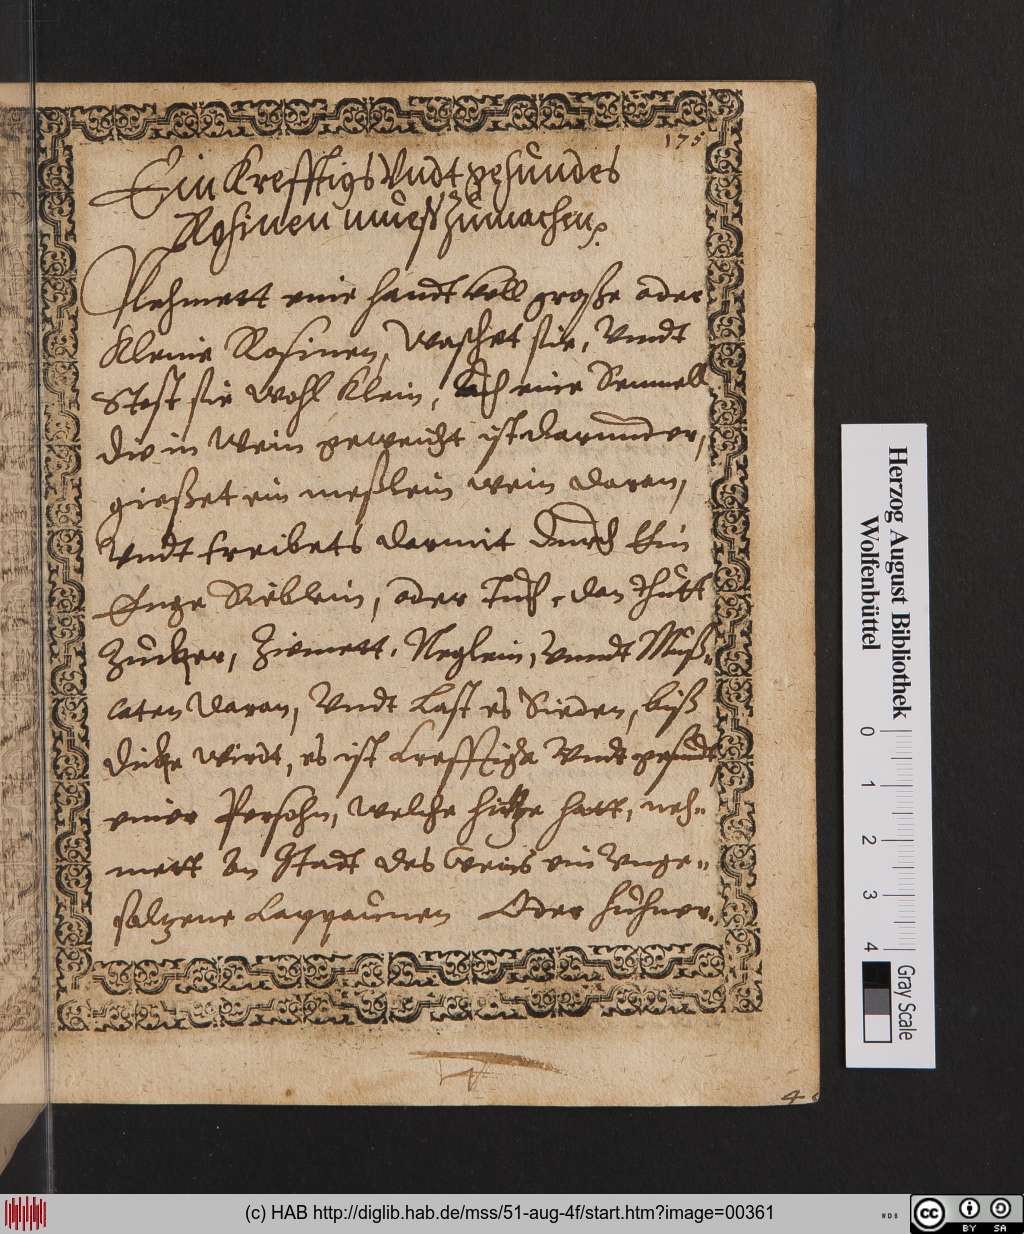 175
Ein Krefftigs Vndt gesundes
Rosinen mueß Zumachen.
Nehmett eine handt voll große oder
Kleine Rosinen, Waschet sie, Vndt
Stost sie Wohl Klein, auch eine Semmell
die in Wein geweicht ist darunder,
gießet ein meßlein wein daran,
Vndt treibets darmit durch Ein
Enge Sieblein, oder Tuch, dan thutt
Zucker, Zimett, Neglein, Vnndt Muß-
caten daran, Vndt Last es Sieden, biß
dicke wirdt, es ist krefftige Vndt gesundt
einer Persohn, welche hitze hatt, neh-
mett An Stadt des Weins ein Vnge-
salzene Lappaunen Oder huhner.
4
Herzog August Bibliothek
Wolfenbüttel
0 1 2 3 4
Gray Scale
(c) HAB http://diglib.hab.de/mss/51-aug-4f/start.htm?image=00361
WDB
cc BY SA